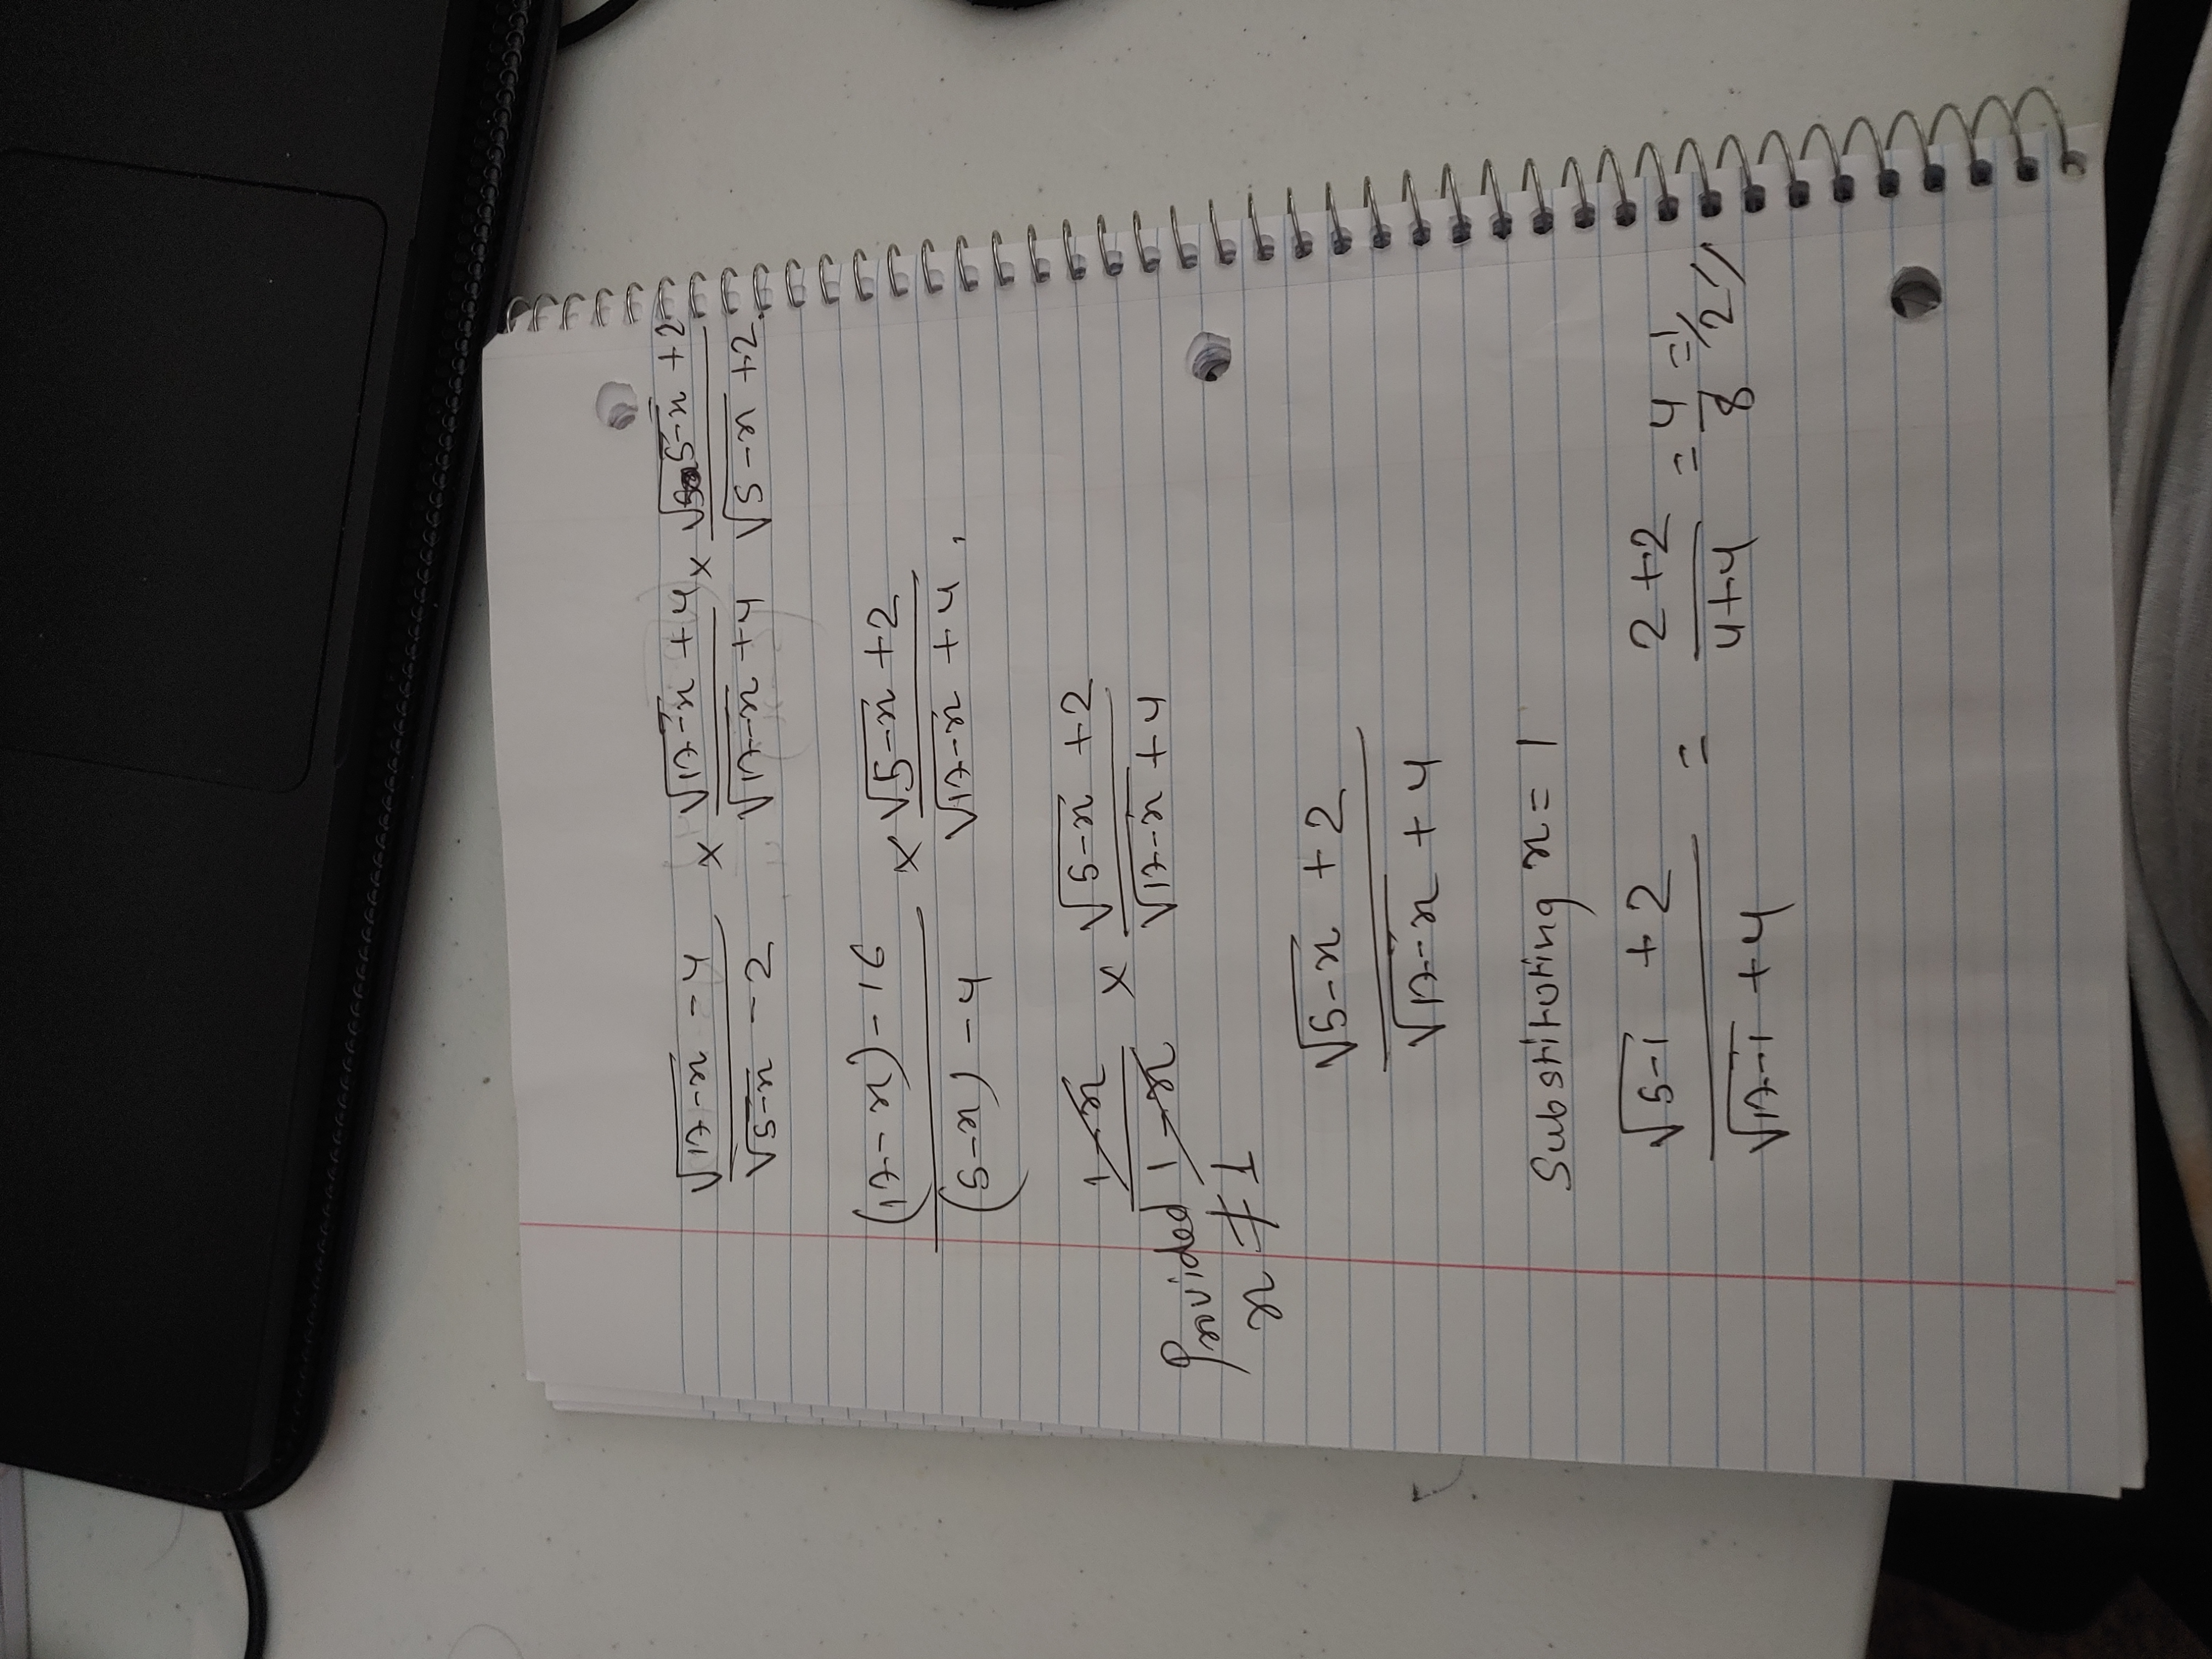 (√(17-x) - 4)/(√(5-x) - 2) × (√(17-x) + 4)/(√(17-x) + 4) × (√(5-x) + 2)/(√(5-x) + 2)
((17-x) - 16)/((5-x) - 4) × (√(5-x) + 2)/(√(17-x) + 4)
(1-x)/(1-x) × (√(5-x) + 2)/(√(17-x) + 4)
Provided
x ≠ 1
(√(5-x) + 2)/(√(17-x) + 4)
Substituting x = 1
(√(5-1) + 2)/(√(17-1) + 4) = (2+2)/(4+4) = 4/8 = 1/2 //